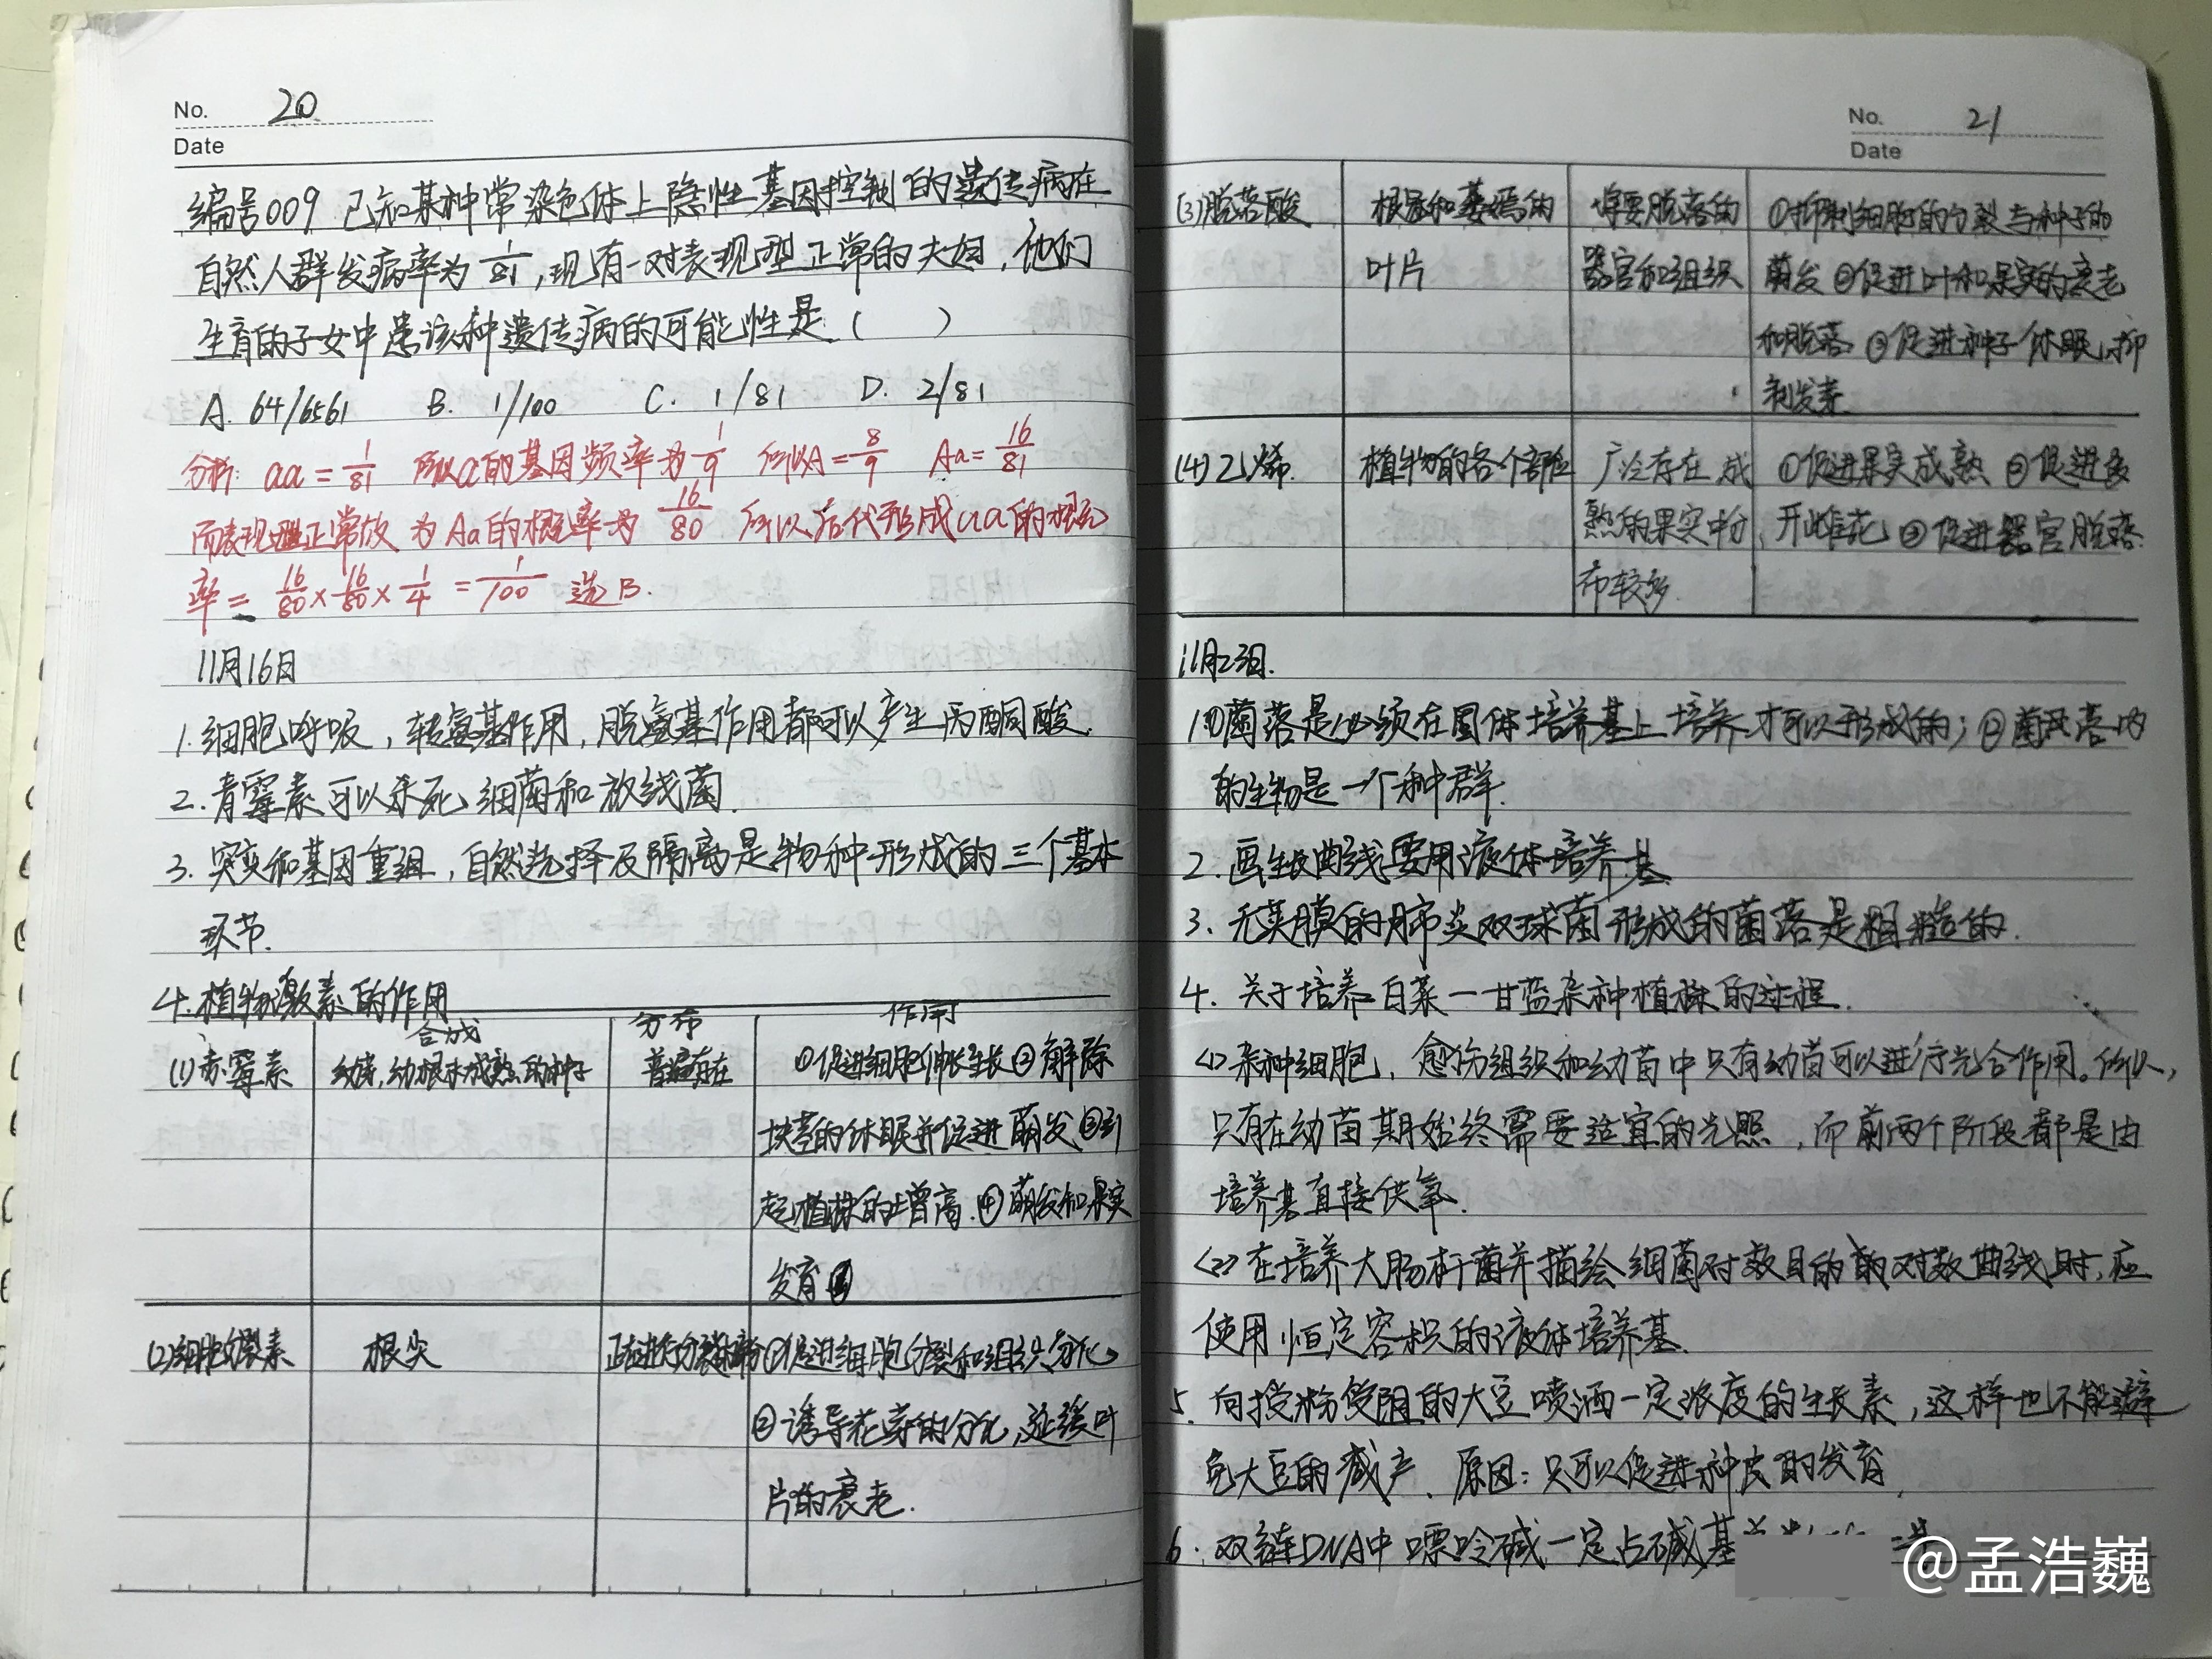 No. 20
Date
编号009 已知某种常染色体上隐性基因控制的遗传病在
自然人群发病率为1/81,现有一对表现型正常的夫妇,他们
生育的子女中患该种遗传病的可能性是( )
A. 64/6561 B. 1/100 C. 1/81 D. 2/81
分析: aa=1/81 所以a的基因频率为1/9 所以A=8/9 Aa=16/81
而表现型正常故为Aa的概率为16/80 所以后代形成aa的概
率=16/80×16/80×1/4=1/100 选B.
11月16日
1.细胞呼吸,转氨基作用,脱氨基作用都可以产生丙酮酸.
2.青霉素可以杀死细菌和放线菌.
3.突变和基因重组,自然选择及隔离是物种形成的三个基本
环节.
4.植物激素的作用
合成 分布 作用
(1)赤霉素 幼芽,幼根未成熟的种子 普遍存在 ①促进细胞伸长生长②解除
块茎的休眠并促进萌发③引
起植株的增高.④萌发和果实
发育
(2)细胞分裂素 根尖 正在进行分裂的部分 ①促进细胞分裂和组织分化
②诱导花芽的分化,延缓叶
片的衰老.
No. 21
Date
(3)脱落酸 根冠和萎蔫的 将要脱落的 ①抑制细胞的分裂与种子的
叶片 器官和组织 萌发②促进叶和果实的衰老
和脱落③促进种子休眠,抑
制发芽.
(4)乙烯. 植物的各个部位 广泛存在,成 ①促进果实成熟②促进多
熟的果实中分 开雌花③促进器官脱落.
布较多.
1①菌落是必须在固体培养基上培养才可以形成的;②菌落内
的生物是一个种群.
2.画生长曲线要用液体培养基
3.无荚膜的肺炎双球菌形成的菌落是粗糙的.
4.关于培养白菜—甘蓝杂种植株的过程.
<1>杂种细胞,愈伤组织和幼苗中只有幼苗可以进行光合作用。所以,
只有在幼苗期始终需要适宜的光照,而前两个阶段都是由
培养基直接供氧.
<2>在培养大肠杆菌并描绘细菌对数目的的对数曲线时,应
使用恒定容积的液体培养基.
5.向授粉受阻的大豆喷洒一定浓度的生长素,这样也不能避
免大豆的减产.原因:只可以促进种皮的发育.
6.双链DNA中嘌呤碱一定占碱基
@孟浩巍